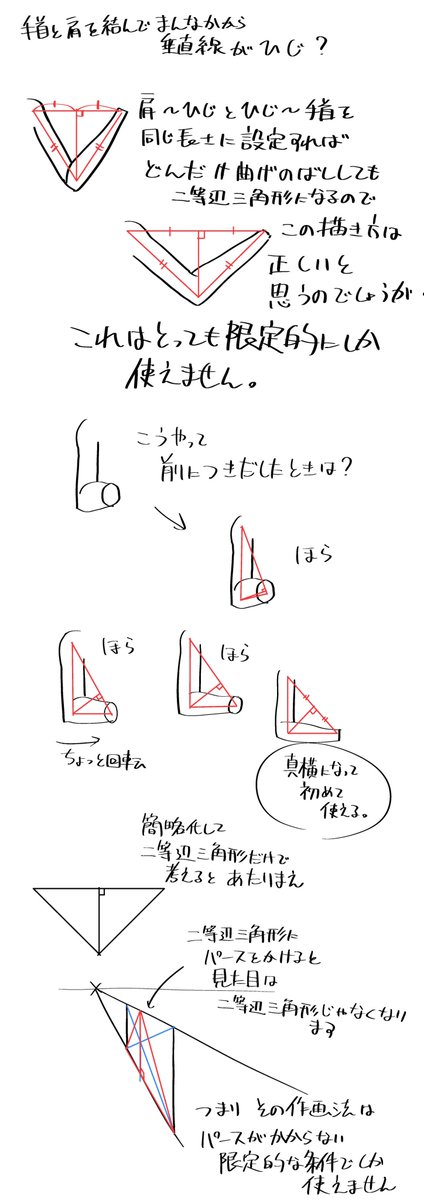 手首と肩を結んでまんなかから
垂直線がひじ？
肩〜ひじとひじ〜手首を
同じ長さに設定すれば
どんだけ曲げのばししても
二等辺三角形になるので
この描き方は
正しいと
思うのでしょうが・
これはとっても限定的にしか
使えません。
こうやって
前につきだしたときは？
ほら
ほら
ほら
ちょっと回転
真横になって
初めて
使える。
簡略化して
二等辺三角形だけで
考えるとあたりまえ
二等辺三角形に
パースをかけると
見た目は
二等辺三角形じゃなくなり
ます
つまり その作画法は
パースがかからない
限定的な条件でしか
使えません